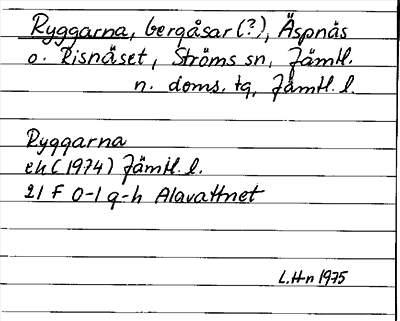 Ryggarna, bergåsar(?), Äspnäs
o. Risnäset, Ströms sn, Jämtl.
n. doms. tg, Jämtl. l.
Ryggarna
ek (1974) Jämtl. l.
21 F 0-1 g-h Alavattnet
L.H-n 1975